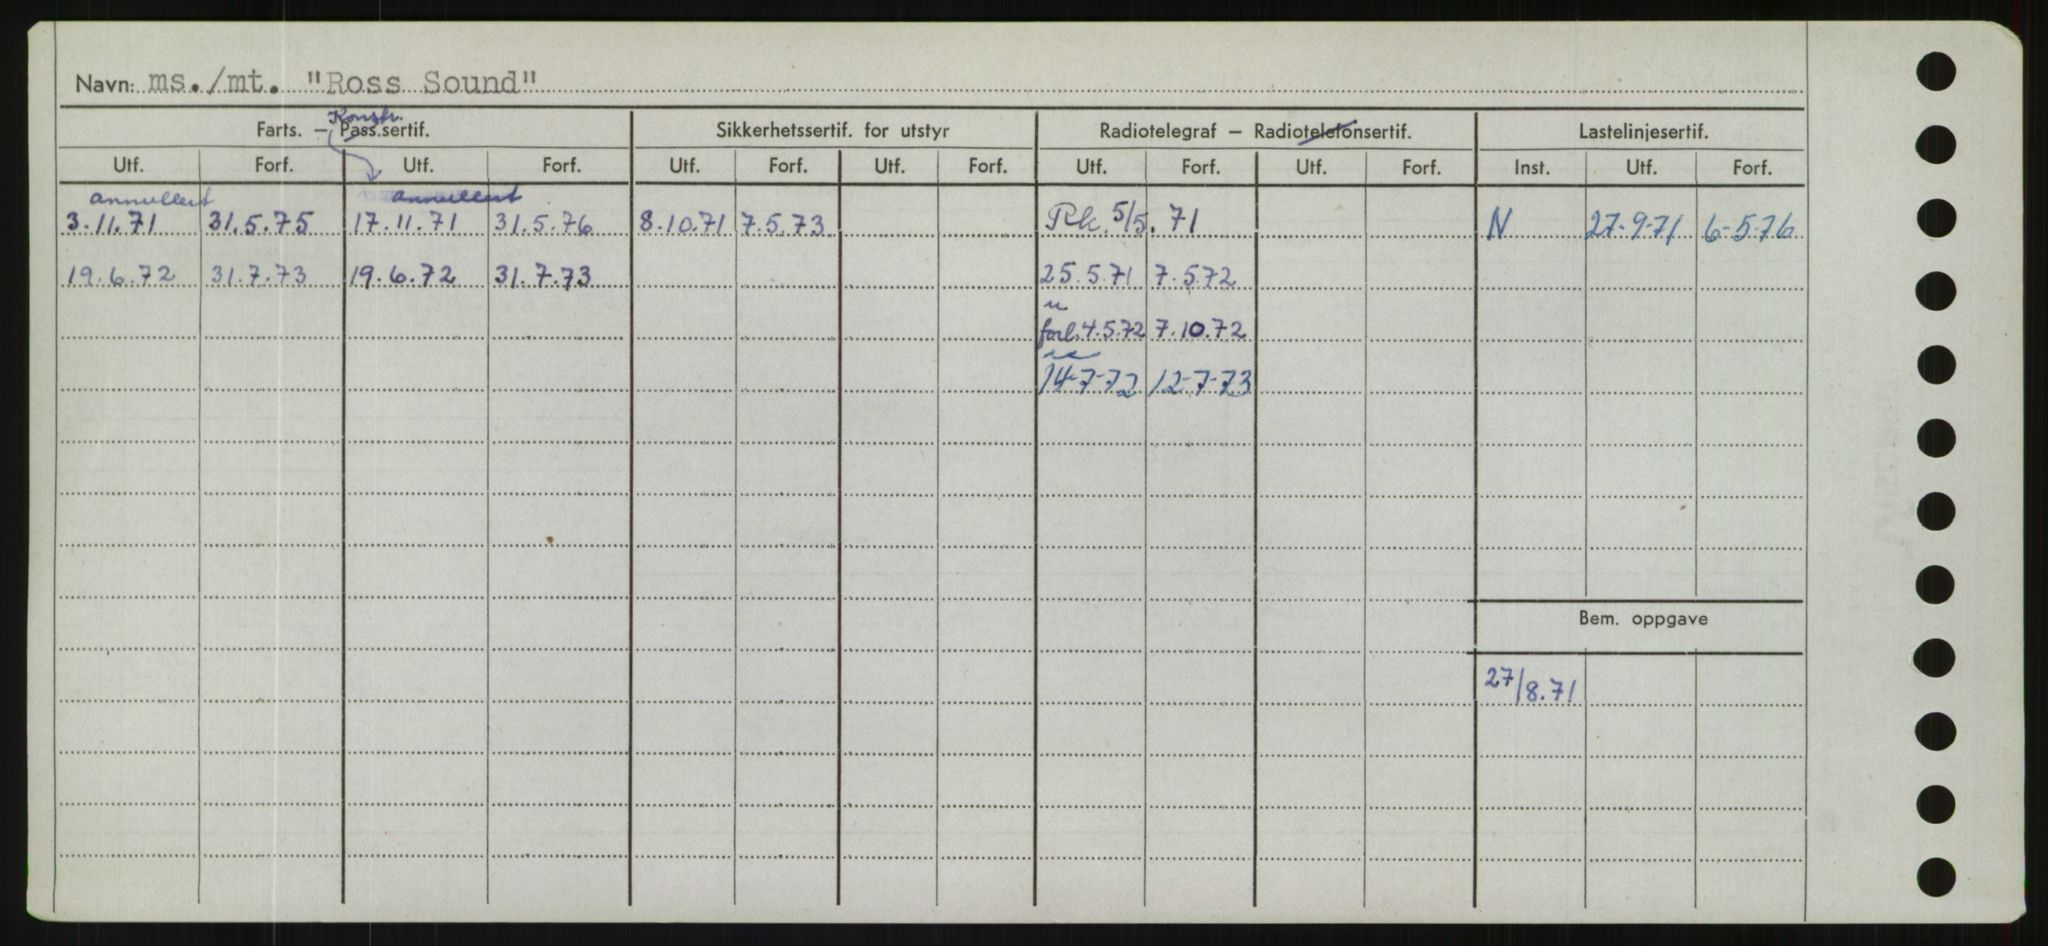 Navn: ms./mt. "Ross Sound"
Konstr.
Farts. — Pass.sertif. Sikkerhetssertif. for utstyr Radiotelegraf — Radiotelefonsertif. Lastelinjesertif.
Utf. Forf. Utf. Forf. Utf. Forf. Utf. Forf. Utf. Forf. Utf. Forf. Inst. Utf. Forf.
annullert annullert
3.11.71 31.5.75 17.11.71 31.5.76 8.10.71 7.5.73 Rk. 5/5.71 N 27-9-71 6-5-76
19.6.72 31.7.73 19.6.72 31.7.73 25.5.71 7.5.72
u
forl. 4.5.72 7.10.72
14-7-72 12-7-73
Bem. oppgave
27/8.71